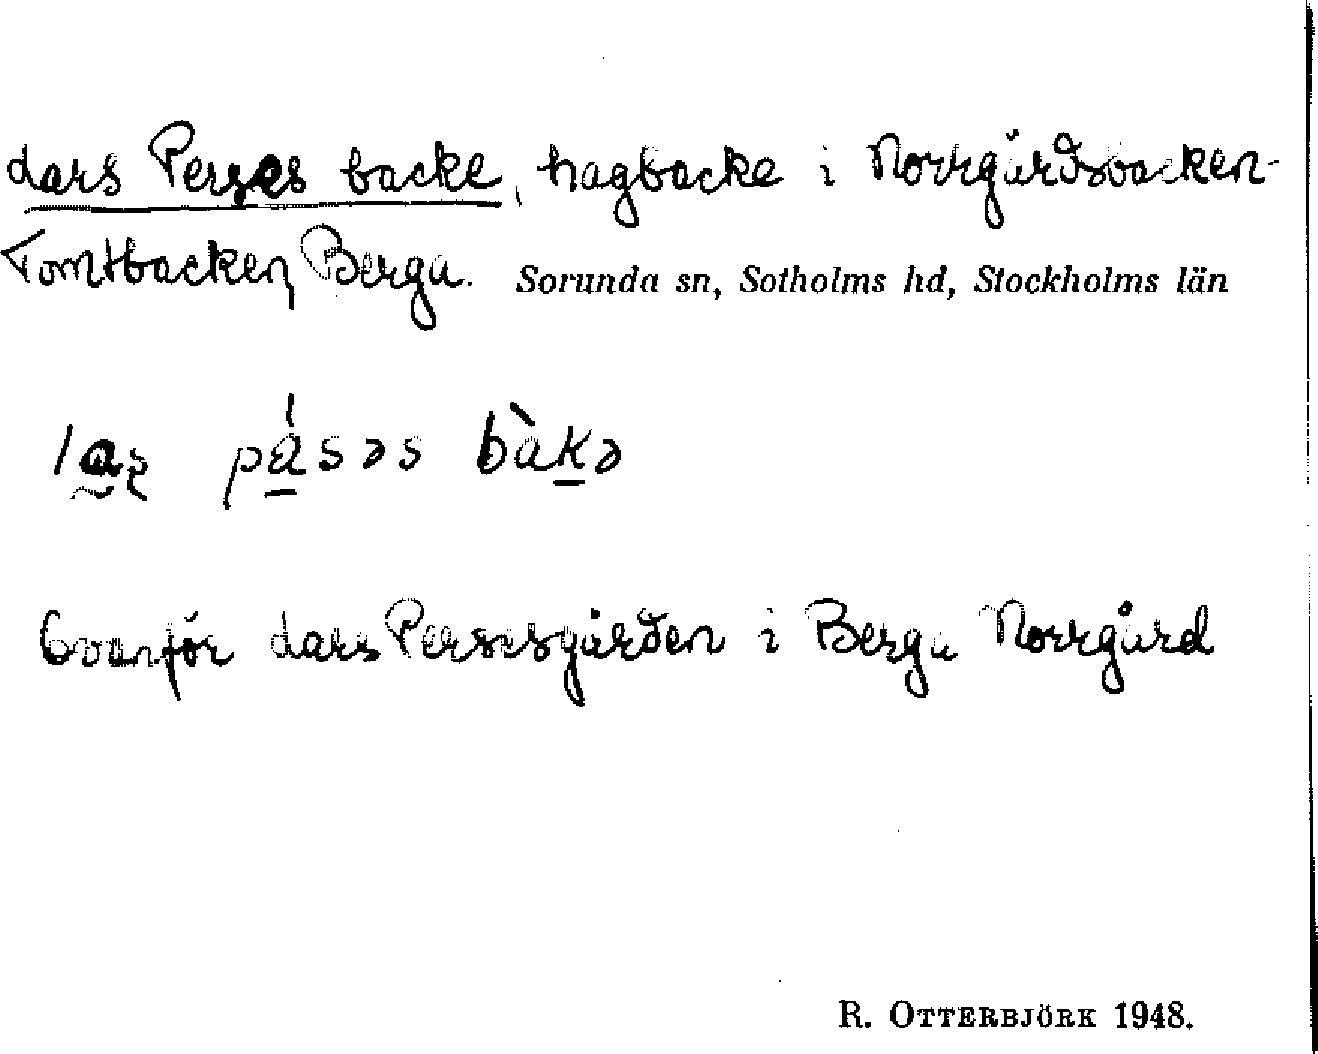 Lars Perses backe, hagbacke i Norrgårdsbacken-
Tomtbacken, Berga. Sorunda sn, Sotholms hd, Stockholms län
pásəs bàkə
Ovanför Lars Persesgården i Berga Norrgård
R. OTTERBJÖRK 1948.